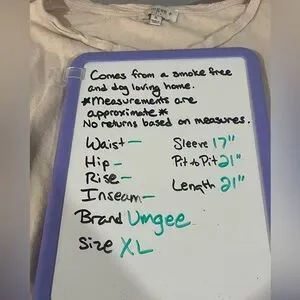 Comes from a smoke free
and dog loving home.
*Measurements are
approximate*
No returns based on measures.
Waist— Sleeve 17"
Hip— Pit to Pit 21"
Rise— Length 21"
Inseam—
Brand Umgee
Size XL